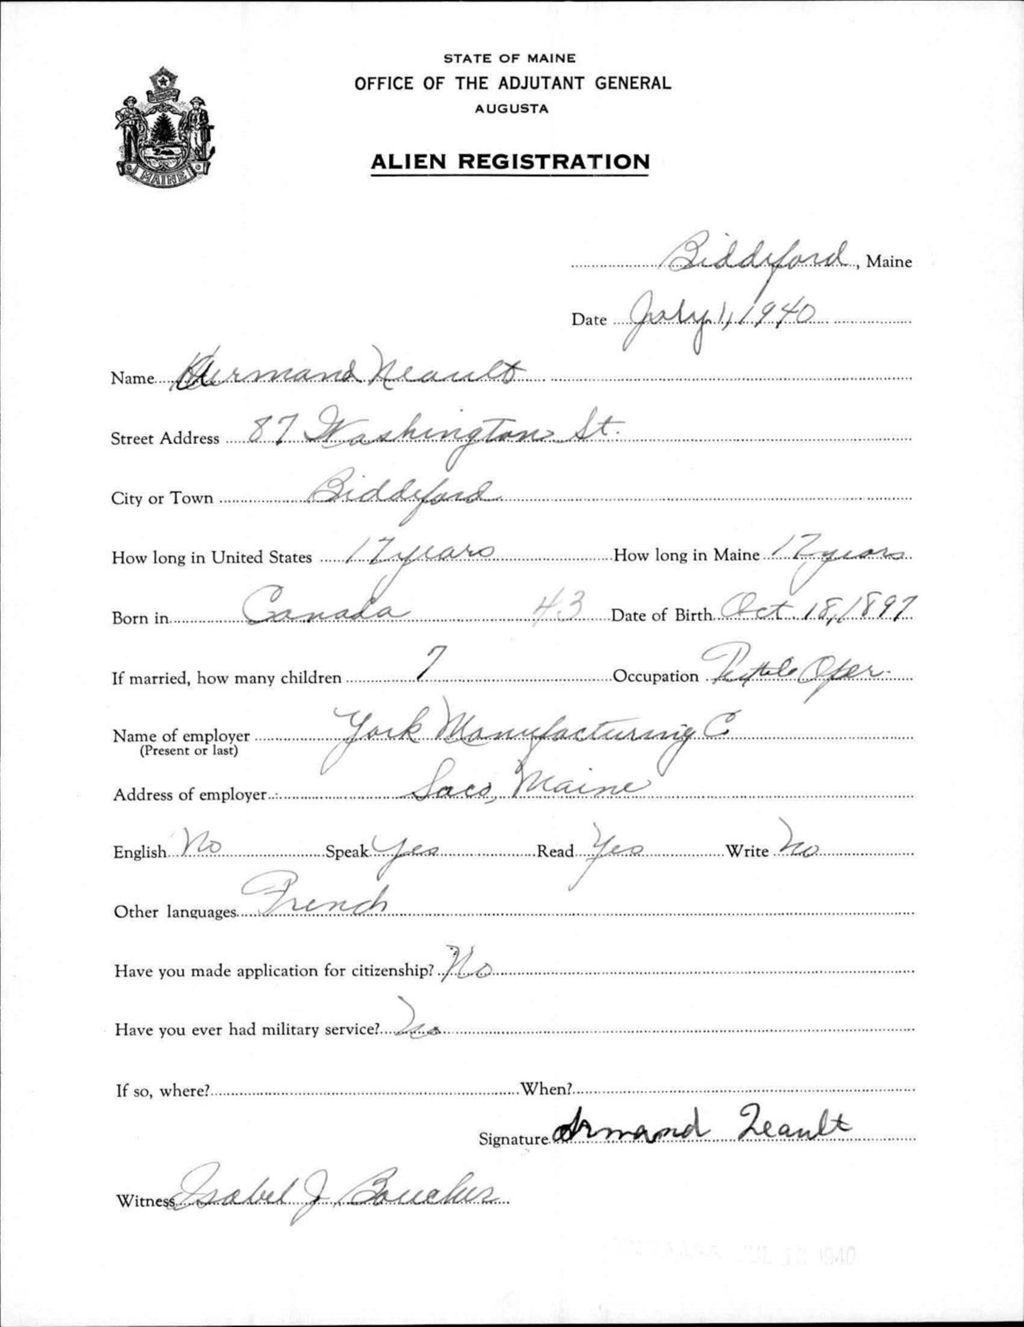 STATE OF MAINE
OFFICE OF THE ADJUTANT GENERAL
AUGUSTA
ALIEN REGISTRATION
MAINE
Biddeford, Maine
Date July 1, 1940
Name Neault
Street Address 87 Washington St.
City or Town Biddeford
How long in United States 17 years How long in Maine 17 years
Born in Canada 43 Date of Birth Oct. 18, 1897
If married, how many children 7 Occupation Oper.
Name of employer York Manufacturing C
(Present or last)
Address of employer Saco, Maine
English No Speak Yes Read Yes Write No
Other languages French
Have you made application for citizenship? No
Have you ever had military service? No
If so, where? When?
Signature Armand Neault
Witness Isabel J. Boucher
JUL 1940